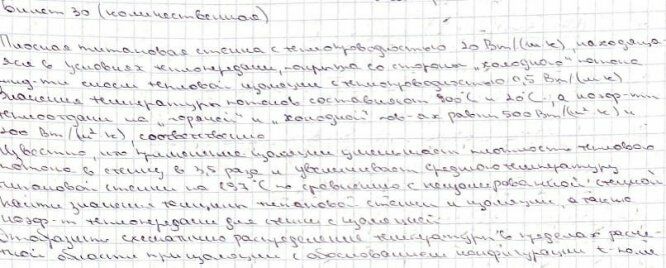 Билет 30 (количественная)
Плоская титановая стенка с теплопроводностью 20 Вт/(м К), находяща-
яся в условиях теплопередачи, покрыта со стороны "холодного" потока
жид-ти слоем тепловой изоляции с теплопроводностью 0,5 Вт/(м К).
Значения температуры потоков составляют 900°С и 20°С, а коэф-ты
теплоотдачи на "горячей" и "холодной" пов-ах равны 500 Вт/(м² К) и
200 Вт/(м² К), соответственно
Известно, что применение изоляции уменьшает плотность теплового
потока в стенку в 3,5 раза и увеличивает среднюю температуру
титановой стенки на 197°С по сравнению с неизолированной стенкой
Найти значения толщины титановой стенки и изоляции, а также
коэф-т теплопередачи для стенки с изоляцией.
Отобразить схематично распределение температуры в пределах расчё-
тной области при изоляции с обоснованием конфигурации t поле